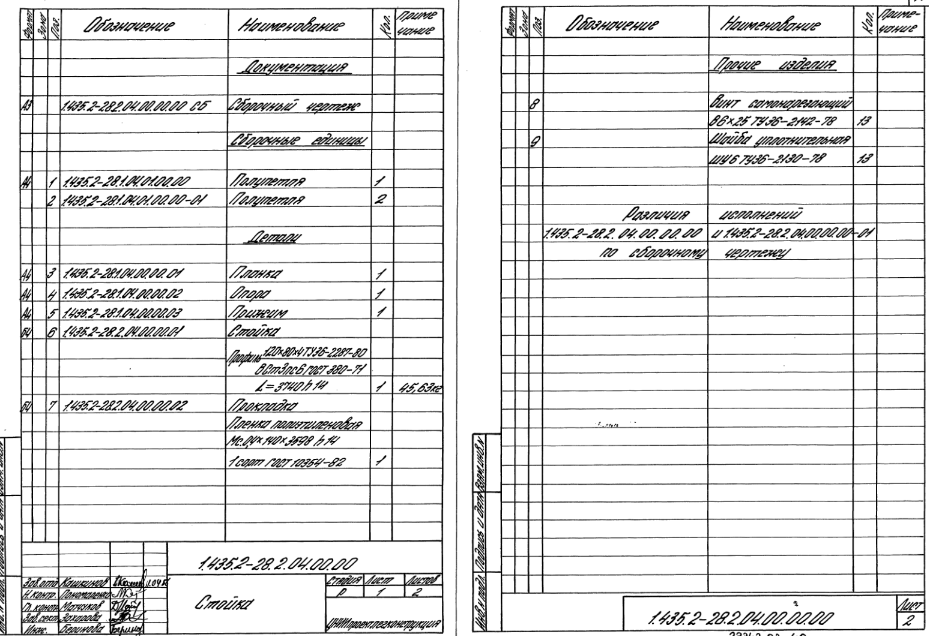 Формат Зона Поз. Обозначение Наименование Кол. Приме чание
Документация
А3 1.435.2-28.2.04.00.00.00 СБ Сборочный чертеж
Сборочные единицы
А4 1 1.435.2-28.1.04.01.00.00 Полупетля 1
2 1.435.2-28.1.04.01.00.00-01 Полупетля 2
Детали
А4 3 1.435.2-28.1.04.00.00.01 Планка 1
А4 4 1.435.2-28.1.04.00.00.02 Опора 1
А4 5 1.435.2-28.1.04.00.00.03 Прижим 1
БЧ 6 1.435.2-28.2.04.00.00.01 Стойка
Профиль 120×80×4 ТУ36-2287-80
ВСт3пс6 ГОСТ 380-71
L=3740 h14 1 45,63кг
БЧ 7 1.435.2-28.2.04.00.00.02 Прокладка
Пленка полиэтиленовая
Мс.0,4×140×3698 h14
1 сорт ГОСТ 10354-82 1
1.435.2-28.2.04.00.00
Зав.отд. Кашкинов
Н.контр. Пономаренко
Гл. констр. Матвиков
Зав.гр. Захарова
Инж. Баринова
Стойка
Стадия Лист Листов
Р 1 2
ЦНИИпроектлегконструкция
Формат Зона Поз. Обозначение Наименование Кол. Приме- чание
Прочие изделия
8 Винт самонарезающий
В6×25 ТУ36-2142-78 13
9 Шайба уплотнительная
ШУ6 ТУ36-2130-78 13
Различия исполнений
1.435.2-28.2.04.00.00.00 и 1.435.2-28.2.04.00.00.00-01
по сборочному чертежу
Инв.№подл. Подпись и дата Взам.инв.№
1.435.2-28.2.04.00.00.00
Лист
2